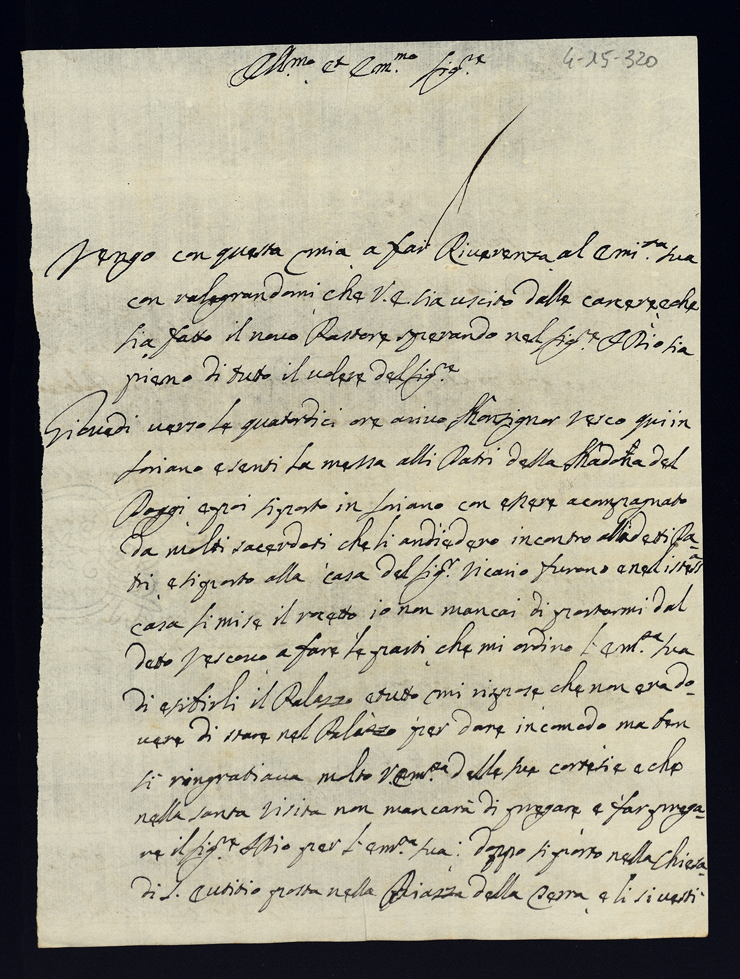 Ill.mo et Em.mo Sig.re
4-15-320
Vengo con questa mia a far Riverenza al Emi.za sua
con ralegrandomi che V.E. sia uscito dalle carcere e che
sia fatto il novo Pastore sperando nel Sig.re Idio sia
pieno di tuto il volere del Sig.re
Giovedi verso le quatordici ore arivo Monsignor Vesco qui in
Soriano e senti la messa alli Patri della Madonna del
Poggi e poi si porto in Soriano con essere acompagnato
da molti sacerdoti che li andiedero incontro alli detti Pa-
tri e si porto alla casa del Sig.r Vicario e nel istess
casa si mise il rocetto io non mancai di portarmi dal
deto Vescovo a fare le parti che mi ordino l'Em.za sua
di esibirli il Palazzo e tutto mi rispose che non era do-
vere di stare nel Palazzo per dare incomodo ma ben
si ringratiava molto V. Em.za delle sue cortesie e che
nella santa Visita non mancarà di pregare e far prega-
re il Sig.re Idio per l'Em.za sua: doppo si porto nella Chiesa
di S. Eutitio posta nella Piazza della Serra e li si vesti